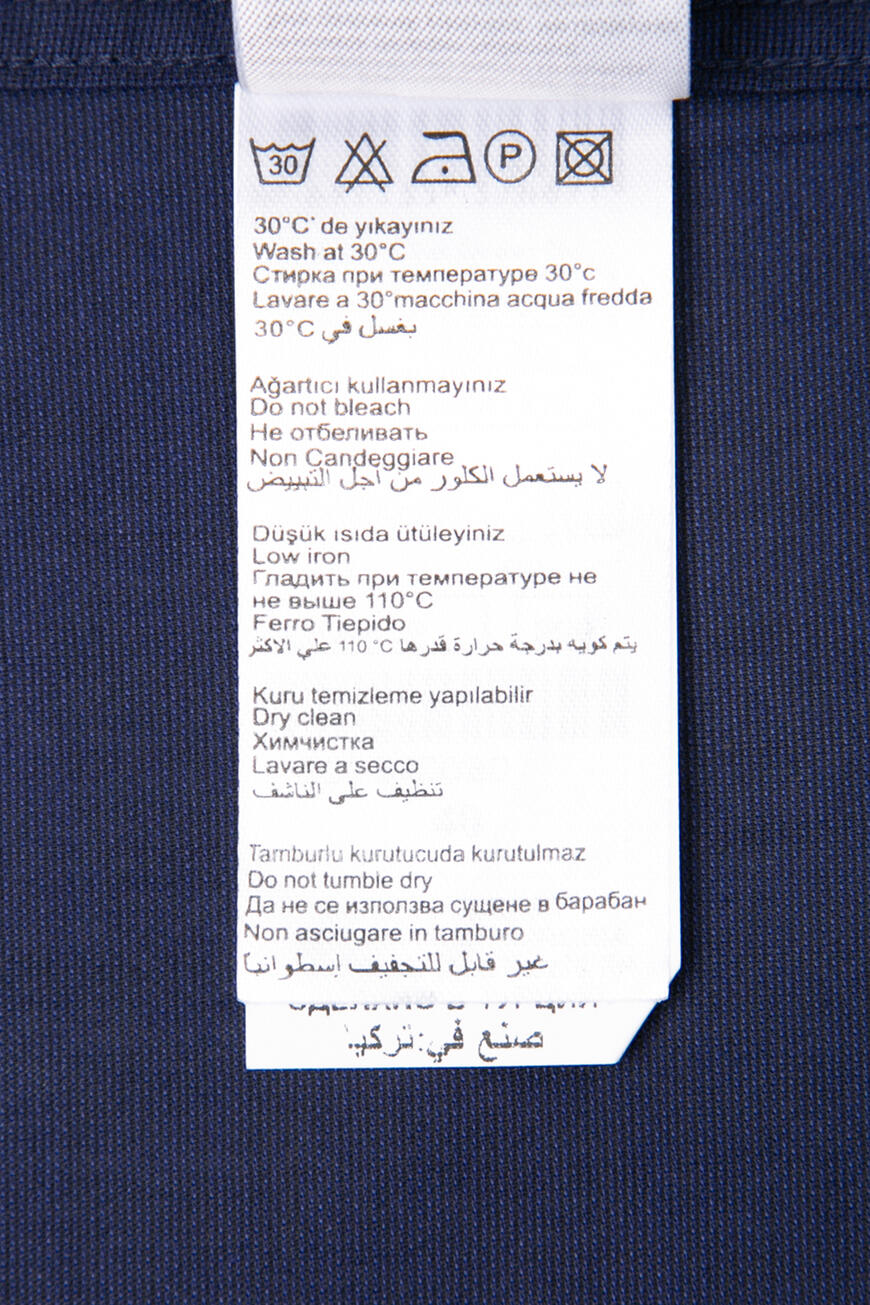 30
P
30°C' de yıkayınız
Wash at 30°C
Стирка при температуре 30°c
Lavare a 30°macchina acqua fredda
يغسل في 30°C
Ağartıcı kullanmayınız
Do not bleach
Не отбеливать
Non Candeggiare
لا يستعمل الكلور من اجل التبييض
Düşük ısıda ütüleyiniz
Low iron
Гладить при температуре не
не выше 110°C
Ferro Tiepido
يتم كويه بدرجة حرارة قدرها 110 °C علي الاكثر
Kuru temizleme yapılabilir
Dry clean
Химчистка
Lavare a secco
تنظيف على الناشف
Tamburlu kurutucuda kurutulmaz
Do not tumble dry
Да не се използва сущене в барабан
Non asciugare in tamburo
غير قابل للتجفيف إسطوانيا
صنع في: تركيا